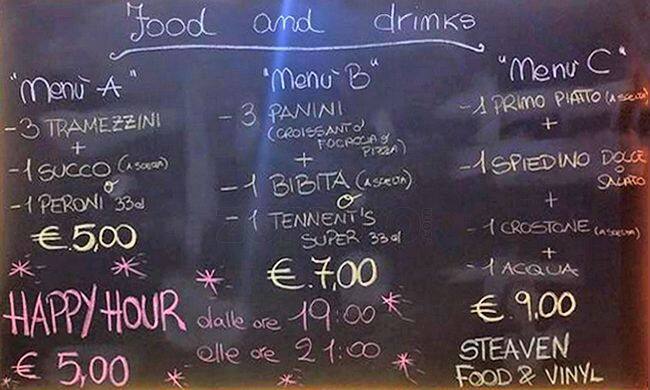 Food and drinks
"Menù A"
- 3 TRAMEZZINI
+
- 1 SUCCO (A SCELTA)
o
- 1 PERONI 33cl
€ 5,00
"Menù B"
- 3 PANINI
(CROISSANT O
FOCACCIA O
PIZZA)
+
- 1 BIBITA (A SCELTA)
o
- 1 TENNENT'S
SUPER 33cl
€ 7,00
"Menù C"
- 1 PRIMO PIATTO (A SCELTA)
+
- 1 SPIEDINO DOLCE
O
SALATO
+
- 1 CROSTONE (A SCELTA)
+
- 1 ACQUA
€ 9,00
HAPPY HOUR dalle ore 19:00
alle ore 21:00
€ 5,00
STEAVEN
FOOD & VINYL